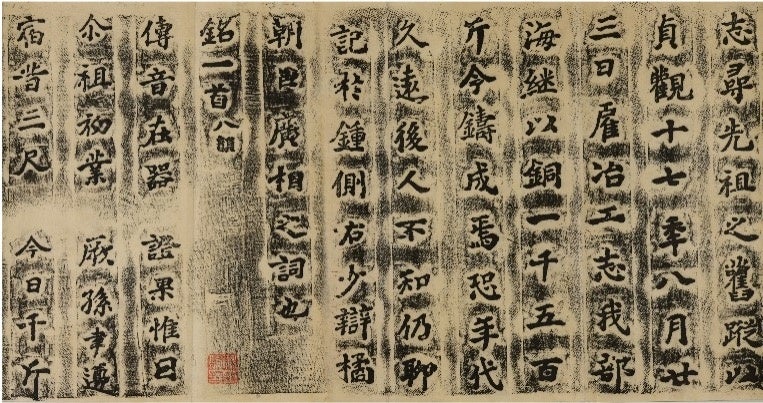 志尋先祖之舊蹤以
貞觀十七年八月廿
三日雇冶工志我部
海継以銅一千五百
斤令鑄成焉恐年代
久遠後人不知仍聊
記於鍾側右少辯橘
朝臣廣相之詞也
銘一首八韻
傳音在器 證果惟因
尒祖初業 厥孫聿遵
宿昔三尺 今日千斤